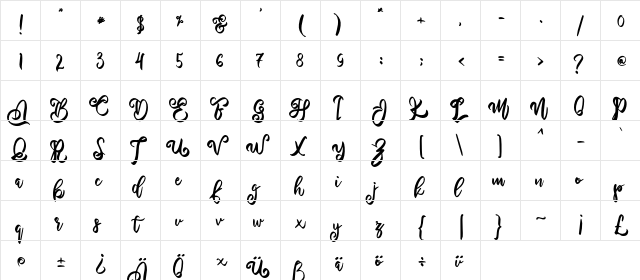 ! " # $ % & ' ( ) * + , - . / 0
1 2 3 4 5 6 7 8 9 : ; < = > ? @
A B C D E F G H I J K L M N O P
Q R S T U V W X Y Z [ \ ] ^ - `
a b c d e f g h i j k l m n o p
q r s t u v w x y z { | } ~ ¡ £
© ± ¿ Ä Ö × Ü ß ä ö ÷ ü